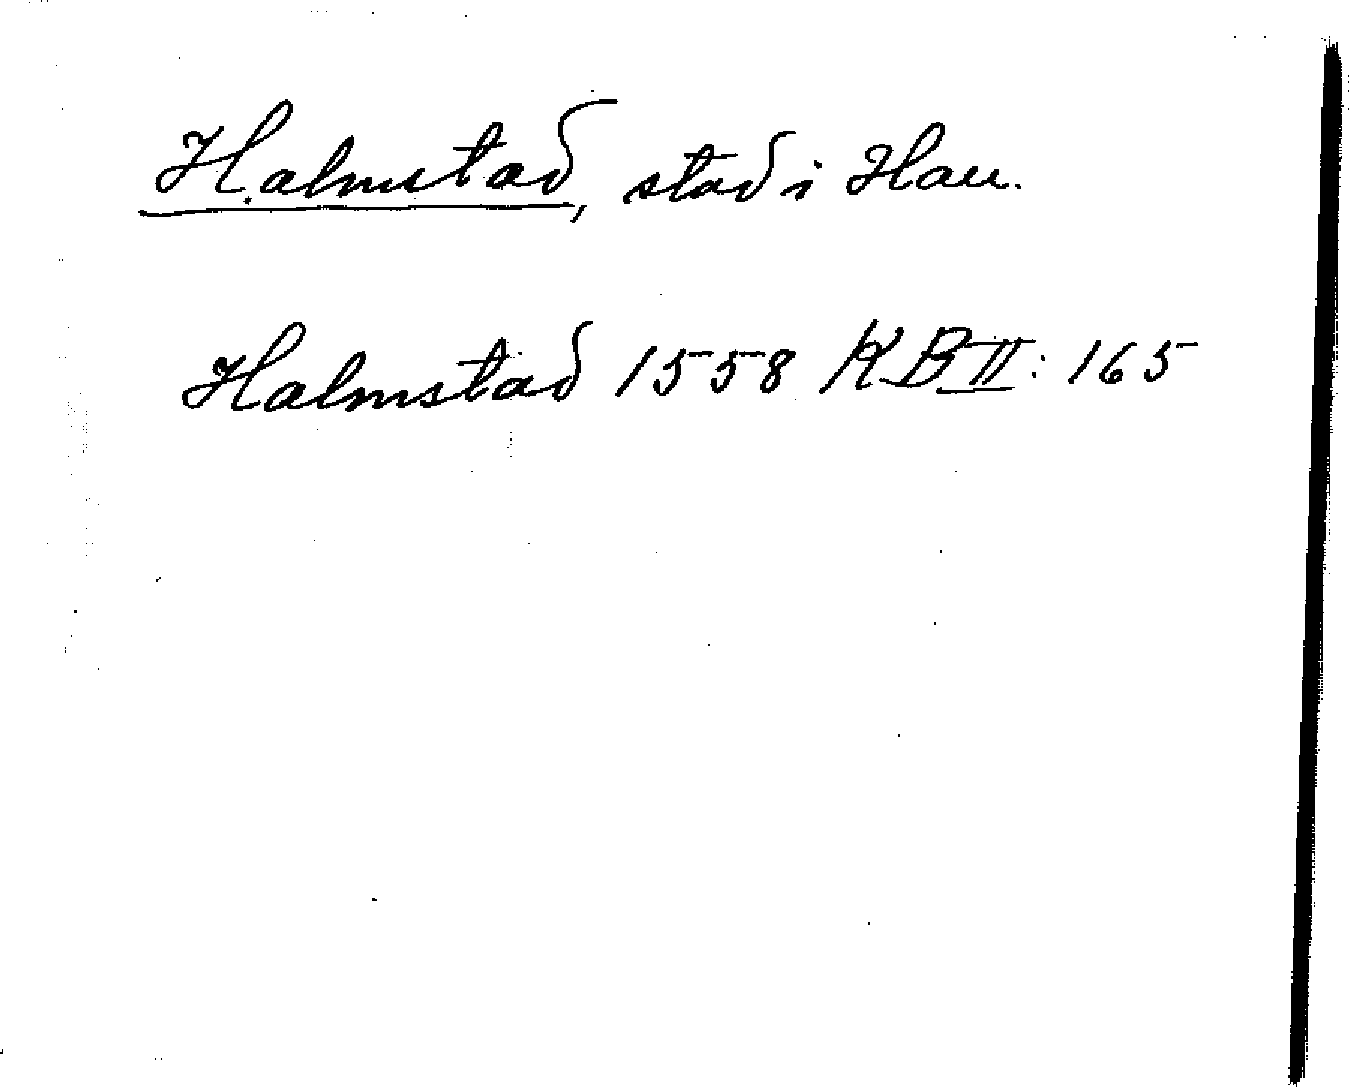 Halmstad, stad i Hall.
Halmstad 1558 KB II: 165